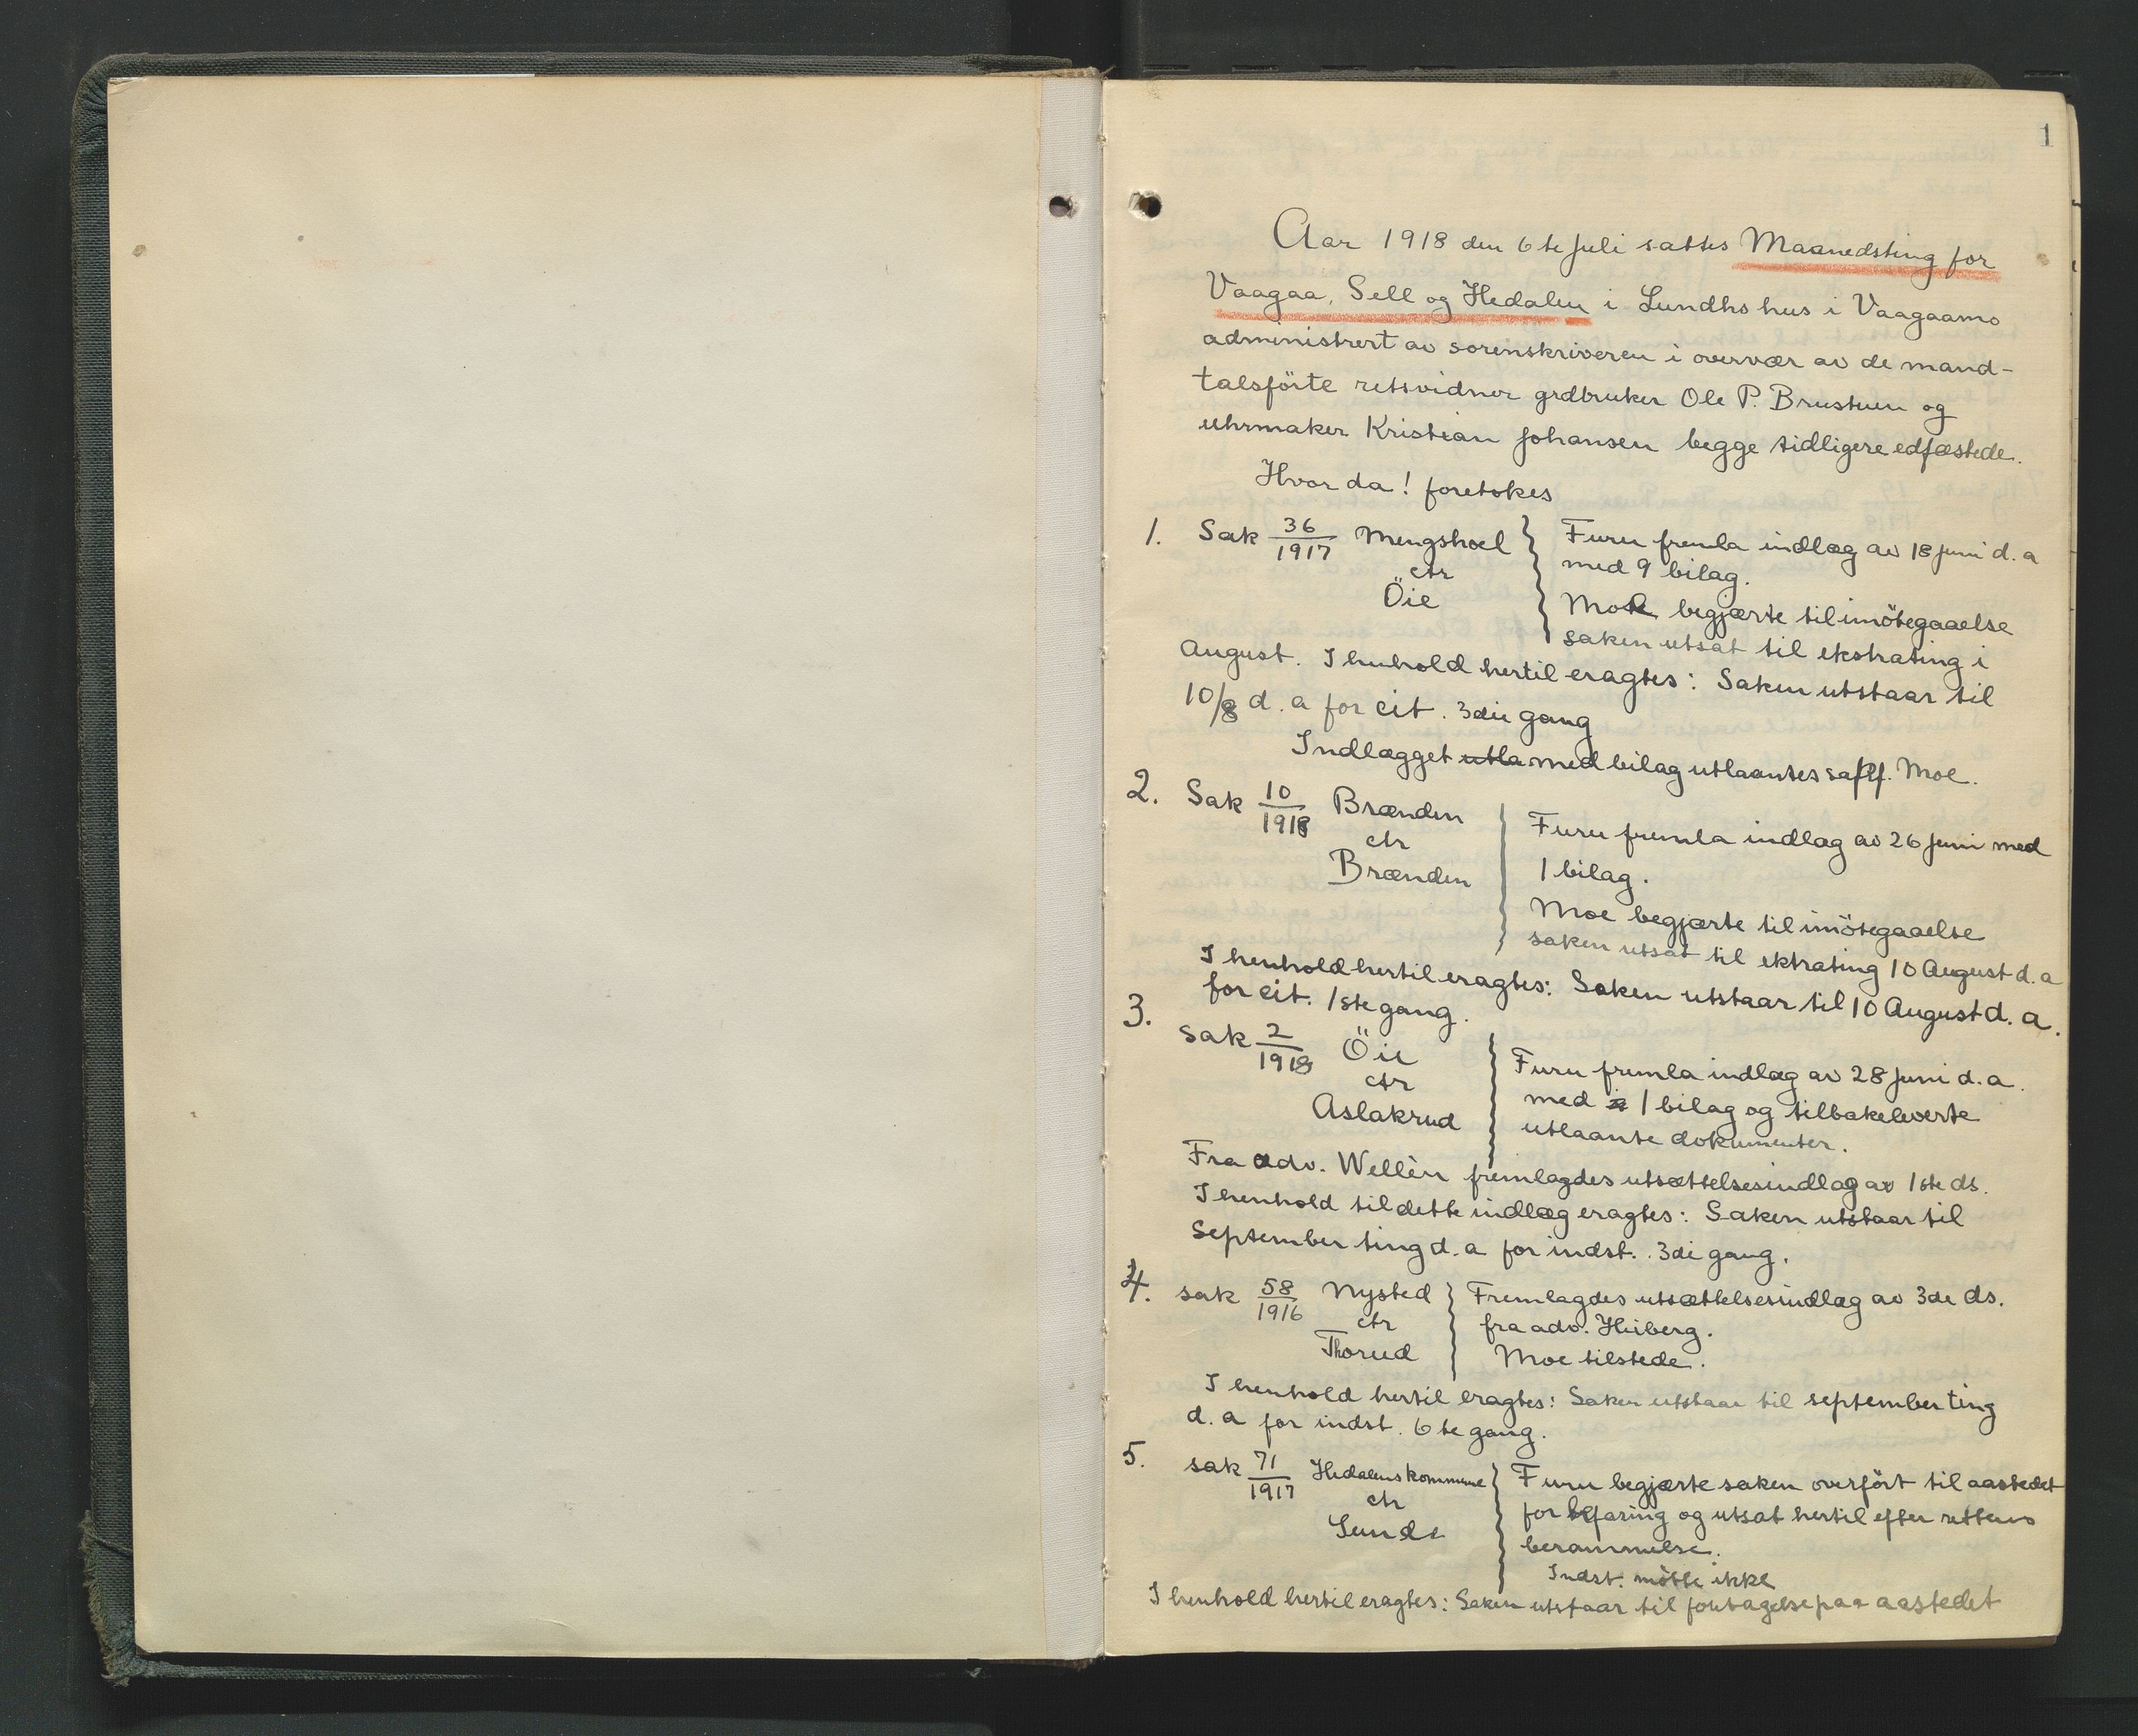 1
Aar 1918 den 6te Juli sattes Maanedsting for
Vaagaa, Sell og Hedalen i Lundhs hus i Vaagaamo
administrert av sorenskriveren i overvær av de mand-
talsförte retsvidner grdbruker Ole P. Brustuen og
uhrmaker Kristian Johansen begge tidligere edfæstede.
Hvor da! foretokes
1. Sak 36/1917 Mengshoel ctr Öie
Furu fremla indlæg av 18 juni d. a
med 9 bilag.
Moe begjærte til imötegaaelse
saken utsat til ekstrating i
August. I henhold hertil eragtes: Saken utstaar til
10/8 d. a for cit. 3die gang
Indlægget utla med bilag utlaantes sakf. Moe.
2. Sak 10/1918 Brænden ctr Brænden
Furu fremla indlæg av 26 juni med
1 bilag.
Moe begjærte til imötegaaelse
saken utsat til ektrating 10 August d. a
I henhold hertil eragtes: Saken utstaar til 10 August d. a.
for cit. 1ste gang.
3. Sak 2/1918 Öie ctr Aslakrud
Furu fremla indlæg av 28 juni d. a.
med 1 bilag og tilbakeleverte
utlaante dokumenter.
Fra adv. Wellèn fremlagdes utsættelsesindlæg av 1ste ds.
I henhold til dette indlæg eragtes: Saken utstaar til
September ting d. a for indst. 3di gang.
4. sak 58/1916 Nysted ctr Thorud
Fremlagdes utsættelsesindlæg av 3de ds.
fra adv. Heiberg.
Moe tilstede.
I henhold hertil eragtes: Saken utstaar til september ting
d. a for indst. 6te gang.
5. sak 71/1917 Hedalens kommune ctr Sunde
Furu begjærte saken overfört til aastedet
for befaring og utsat hertil efter rettens
berammelse.
Indst. mötte ikke
I henhold hertil eragtes: Saken utstaar til foretagelse paa aastedet